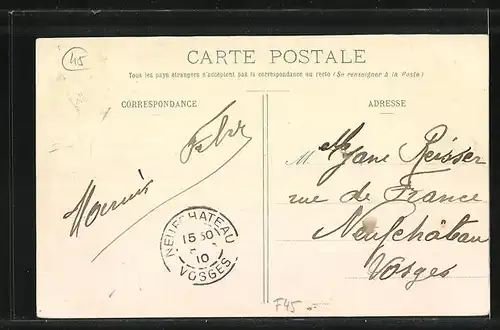 45
CARTE POSTALE
Tous les pays étrangers n'acceptent pas la correspondance au recto (Se renseigner à la Poste)
CORRESPONDANCE
ADRESSE
M
Jane Reisser
rue de France
Neufchâteau
Vosges
NEUFCHATEAU
15 30
10
VOSGES
F45